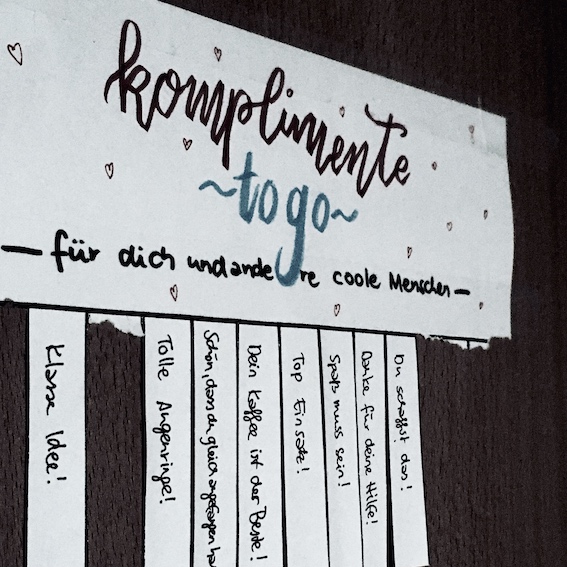 komplimente
~to go~
— für dich und andere coole Menschen —
Klasse Idee!
Tolle Augenringe!
Schön, dass du gleich angefangen ha
Dein Kaffee ist der Beste!
Top Einsatz!
Spaß muss sein!
Danke für deine Hilfe!
Du schaffst das!